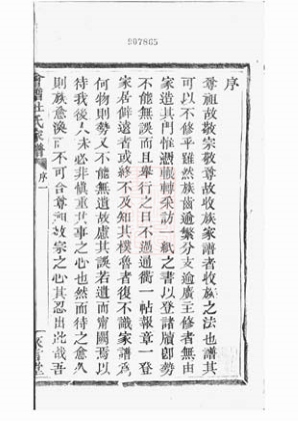 907865
序
尊祖故敬宗敬尊故收族家譜者收族之法也譜其
可以不修乎雖然族齒逾繁分支逾廣主修者無由
家造其門惟憑輾轉采訪一紙之書以登諸牘卽勢
不能無誤而且舉行之日不過通衢一帖報章一登
家居僻遠者或終不及知其樸魯者復不識家譜爲
何物則勢又不能無遺故慮其誤若遺而甯闕焉以
待我後人未必非愼重其事之心也然而待之愈久
則族愈渙而不可合尊祖故宗之心其忍出此哉吾
會稽杜氏家譜
序
一